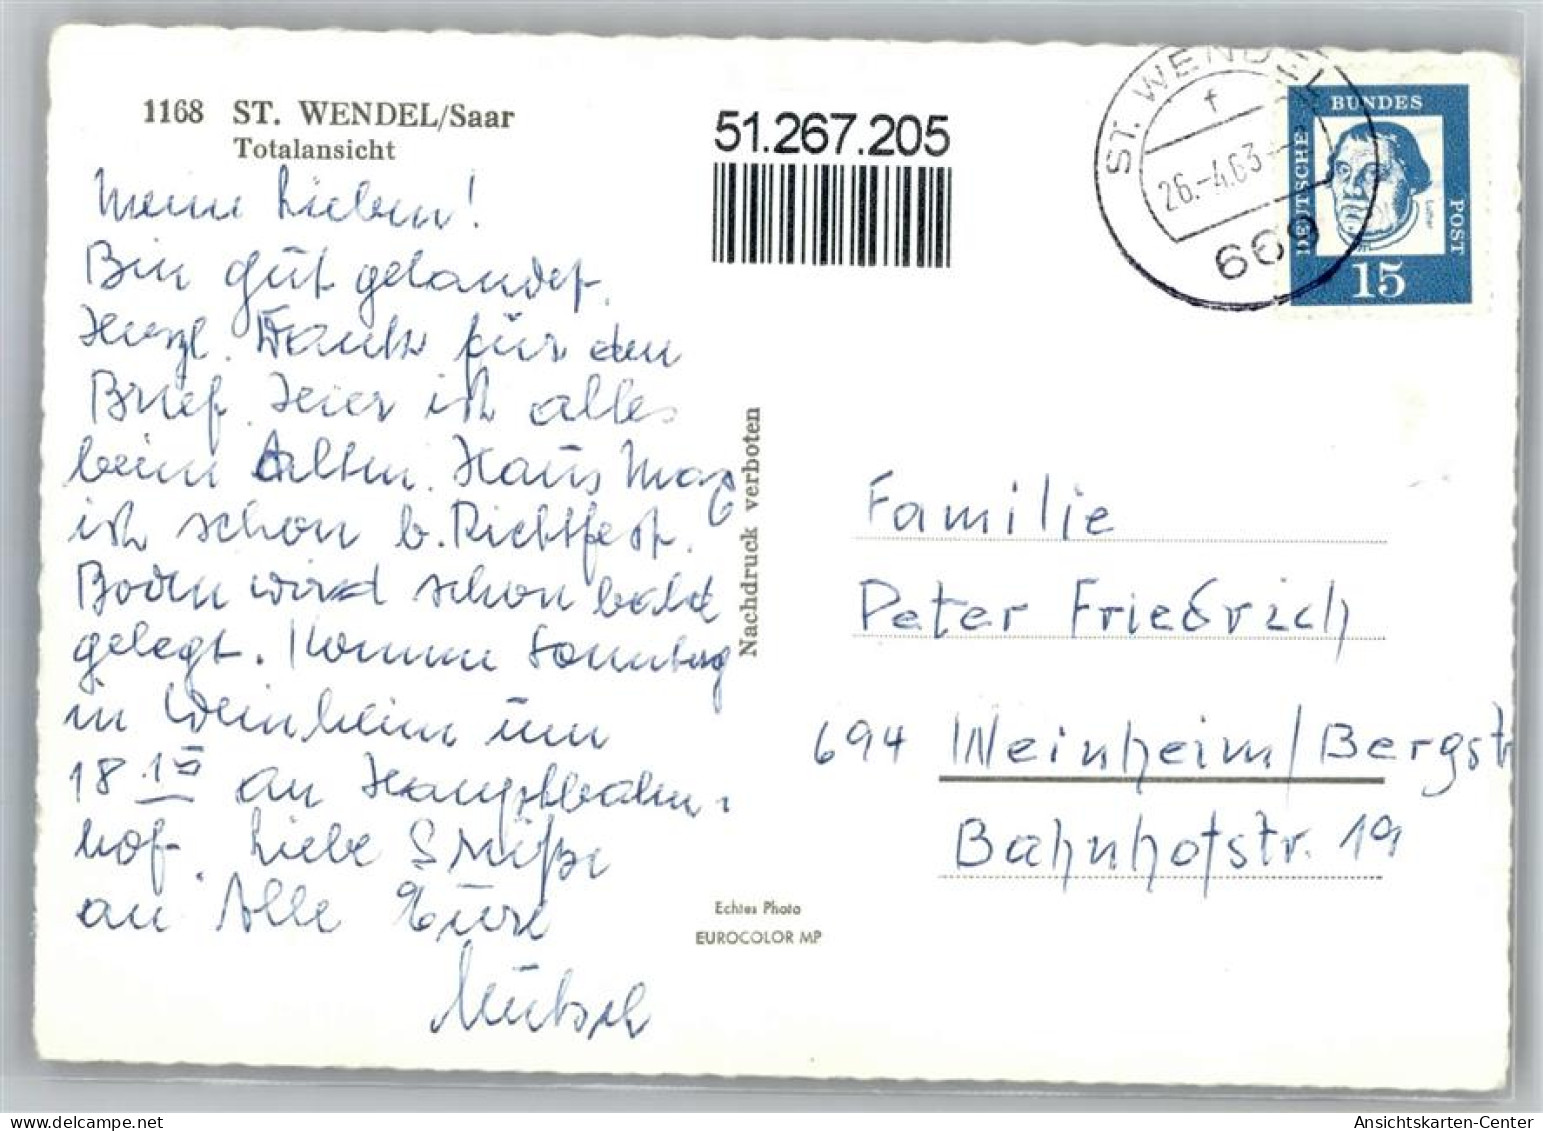 1168 ST. WENDEL/Saar
Totalansicht
Meine Lieben!
Bin gut gelandet.
Herzl. Dank für den
Brief. Hier ist alles
beim Alten. Haus Marg
ist schon b. Richtfest.
Boden wird schon bald
gelegt. Komme Sonntag
in Weinheim um
18 15 an Hauptbahn-
hof. Liebe Grüße
an Alle Eure
51.267.205
Nachdruck verboten
Echtes Photo
EUROCOLOR MP
ST. WENDEL
f
26.-4.63
669
DEUTSCHE
BUNDES
POST
Luther
15
Familie
Peter Friedrich
694 Weinheim/Bergstr
Bahnhofstr. 19
www.delcampe.net
Ansichtskarten-Center